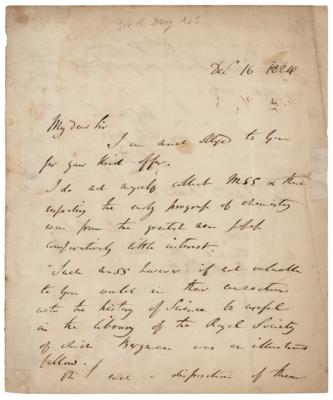 Sir H. Davy ALS
Decr 16 1824
My dear Sir
I am much obliged to you
for your kind offer.
I do not myself collect MSS & those
respecting the early progress of chemistry
even from the greatest men possess
comparatively little interest.
Such MSS however if not valuable
to you would in their connection
with the history of Science be useful
in the library of the Royal Society
of which Bergman was an illustrious
fellow.
a disposition of them